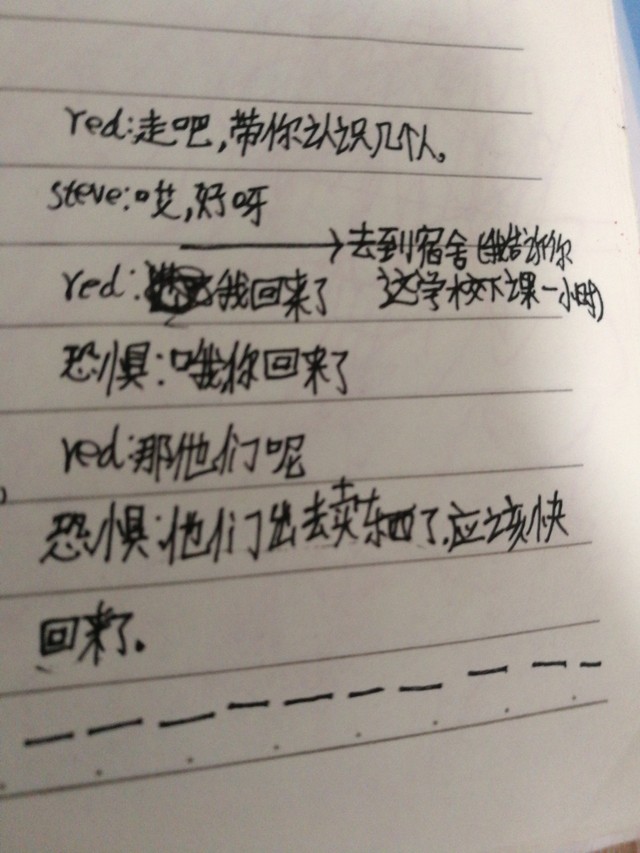 red:走吧,带你认识几个人。
steve:哎,好呀
→去到宿舍(我告诉你
red:我回来了 这学校下课一小时)
恐惧:哦你回来了
red:那他们呢
恐惧:他们出去卖东西了.应该快
回来了。